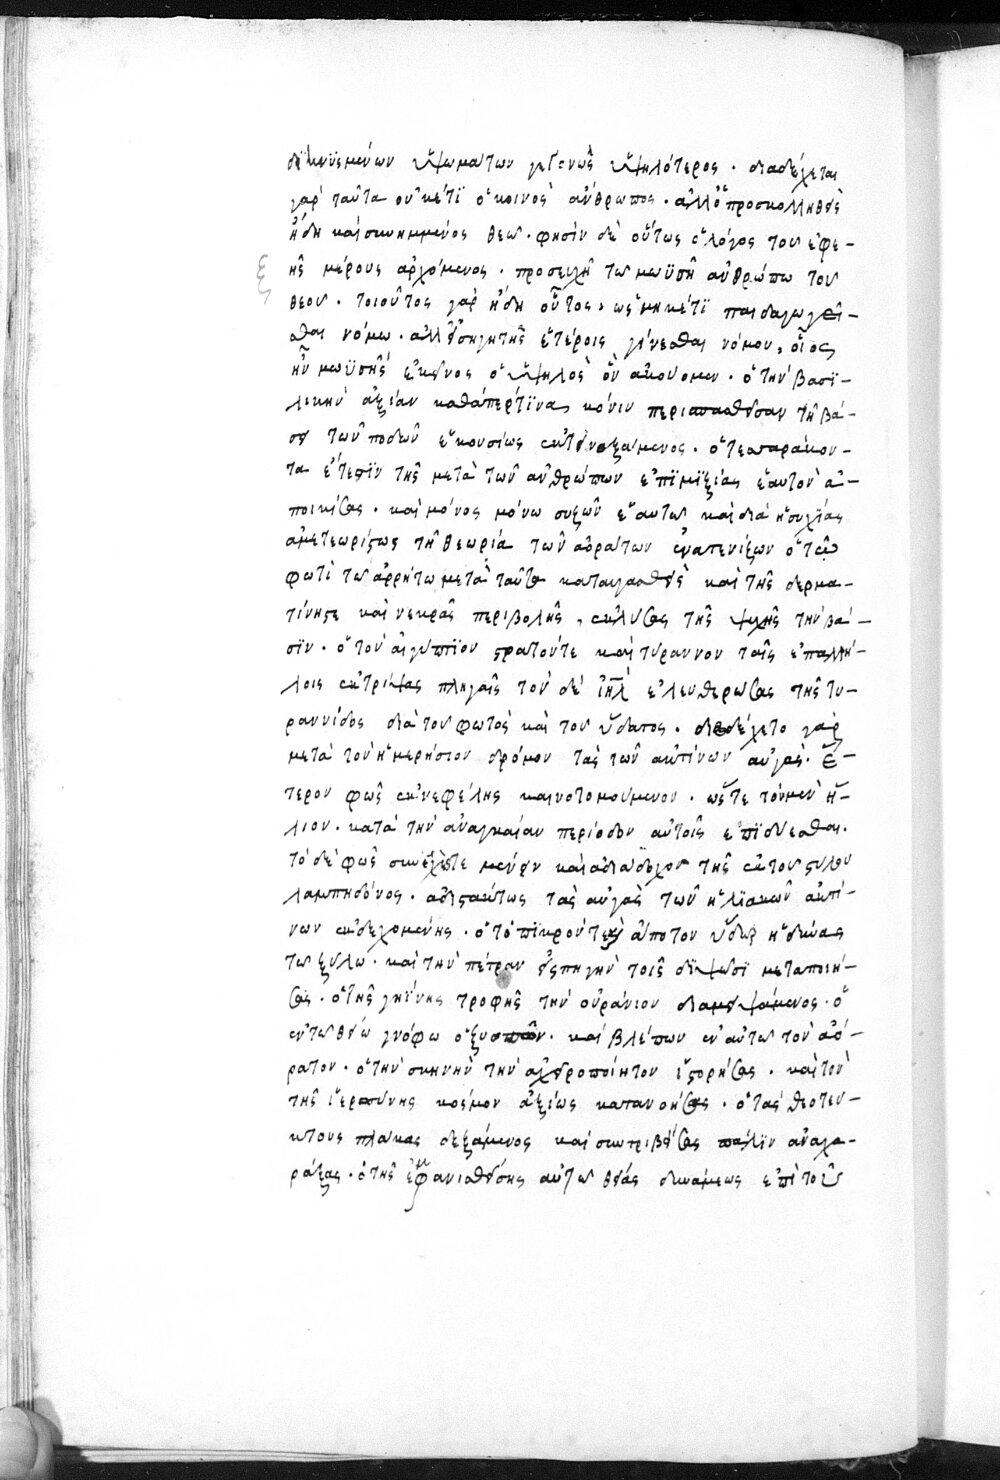 δεικνυμένων ὑψωμάτων γεγονὼς ὑψηλότερος. διαδέχεται
γὰρ ταῦτα οὐκέτι ὁ κοινὸς ἄνθρωπος. ἀλλ' ὁ προσκολληθεὶς
ἤδη καὶ συνημμένος θεῶ. φησὶν δὲ οὕτως ὁ λόγος τοῦ ἐφε-
ῆς μέρους ἀρχόμενος. προσευχὴ τῶ μωϋσῆ ἀνθρώπω τοῦ
θεοῦ. τοιοῦτος γὰρ ἤδη οὗτος, ὡς μηκέτι παιδαγωγεῖ-
σθαι νόμω. ἀλλ' εἰσηγητὴς ἑτέροις γίνεσθαι νόμου, οἷος
ἦν μωϋσῆς ἐκεῖνος ὁ ὑψηλὸς ὃν ἀκούομεν. ὁ τὴν βασι-
λικὴν ἀξίαν καθάπερ τινα κόνιν περισπασθεῖσαν τῆ βά-
σει τῶν ποδῶν ἑκουσίως ἐκτιναξάμενος. ὁ τεσσαράκον-
τα ἔτεσιν τῆς μετὰ τῶν ἀνθρώπων ἐπιμιξίας ἑαυτὸν ἀ-
ποικίσας. καὶ μόνος μόνω συζῶν ἑαυτῶ καὶ διὰ ἡσυχίας
ἀμετεωρίστως τῆ θεωρία τῶν ἀοράτων ἐναπενίζων ὁ τῶ
φωτὶ τῶ ἀρρήτω μετὰ ταῦτα καταυγασθεὶς καὶ τῆς δερμα-
τίνης τε καὶ νεκρᾶς περιβολῆς, ἐκλύσας τῆς ψυχῆς τὴν βά-
σιν. ὁ τὸν αἰγύπτιον στρατόν τε καὶ τύραννον ταῖς ἐπαλλή-
λοις ἐκτρίψας πληγαῖς τὸν δὲ ἰηλ ἐλευθερώσας τῆς τυ-
ραννίδος διὰ τοῦ φωτὸς καὶ τοῦ ὕδατος. διεδέχετο γὰρ
μετὰ τὸν ἡμερήσιον δρόμον τὰς τῶν ἀκτίνων αὐγὰς. ἕ-
τερον φῶς ἐκ νεφέλης καινοτομούμενον. ὥστε τὸν μὲν ἥ-
λιον. κατὰ τὴν ἀναγκαίαν περίοδον αὐτοῖς ἐπιδύεσθαι.
τὸ δὲ φῶς συνεχές τε μένειν καὶ ἀδιάδοχον τῆς ἐκ τοῦ στύλου
λαμπηδόνος. ἀδιστάκτως τὰς αὐγὰς τῶν ἡλιακῶν ἀκτί-
νων ἐκδεχομένης. ὁ τὸ πικρόν τε καὶ ἄποτον ὕδωρ ἡδύνας
τῶ ξύλω. καὶ τὴν πέτραν εἰς πηγὴν τοῖς διψῶσι μεταποιή-
σας. ὁ τῆς γηΐνης τροφῆς τὴν οὐράνιον διαμειψάμενος. ὁ
ἐν τῶ θείω γνόφω ὀξυωπῶν. καὶ βλέπων ἐν αὐτῶ τὸν ἀό-
ρατον. ὁ τὴν σκηνὴν τὴν ἀχειροποίητον ἱστορήσας. καὶ τὸν
τῆς ἱερωσύνης κόσμον ἀξίως κατανοήσας. ὁ τὰς θεοτεύ-
κτους πλάκας δεξάμενος καὶ συντριβείσας πάλιν ἀναχα-
ράξας. ὁ τῆς ἐμφανισθείσης αὐτῶ θείας δυνάμεως ἐπὶ τοῖς